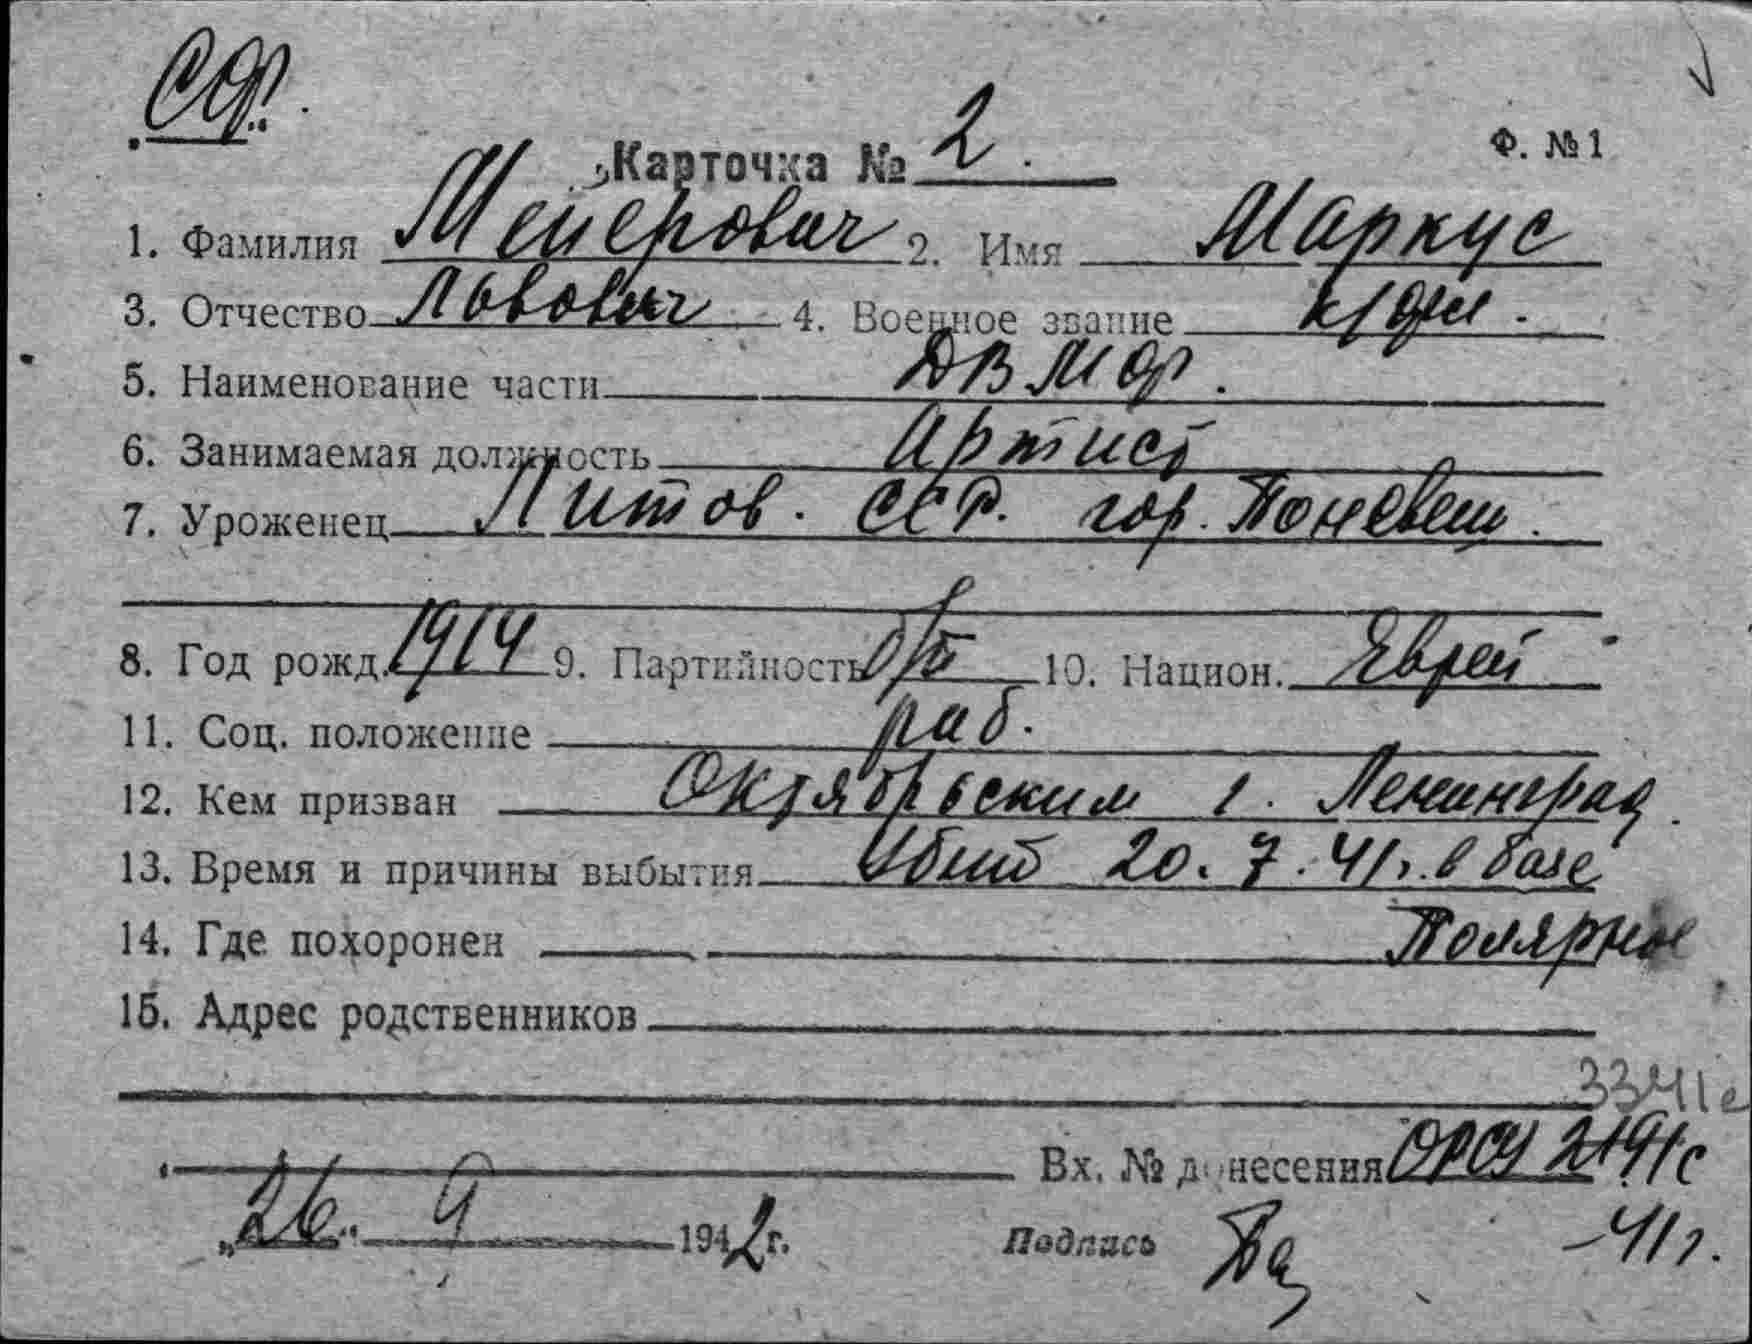 СФ.
Ф. №1
Карточка № 2.
1. Фамилия Меперович 2. Имя Маркус
3. Отчество Львович 4. Военное звание к/фл.
5. Наименование части ДВМФ.
6. Занимаемая должность Артист
7. Уроженец Литов. ССР. гор. Поневеш.
8. Год рожд. 1914 9. Партийность б/п 10. Национ. Еврей
11. Соц. положение раб.
12. Кем призван Октябрьским г. Ленинград.
13. Время и причины выбытия Убит 20.7.41г. в базе
14. Где похоронен Полярное
15. Адрес родственников
Вх. № донесения ОРСУ 2191с
„26“ 9 1942г. Подпись -41г.